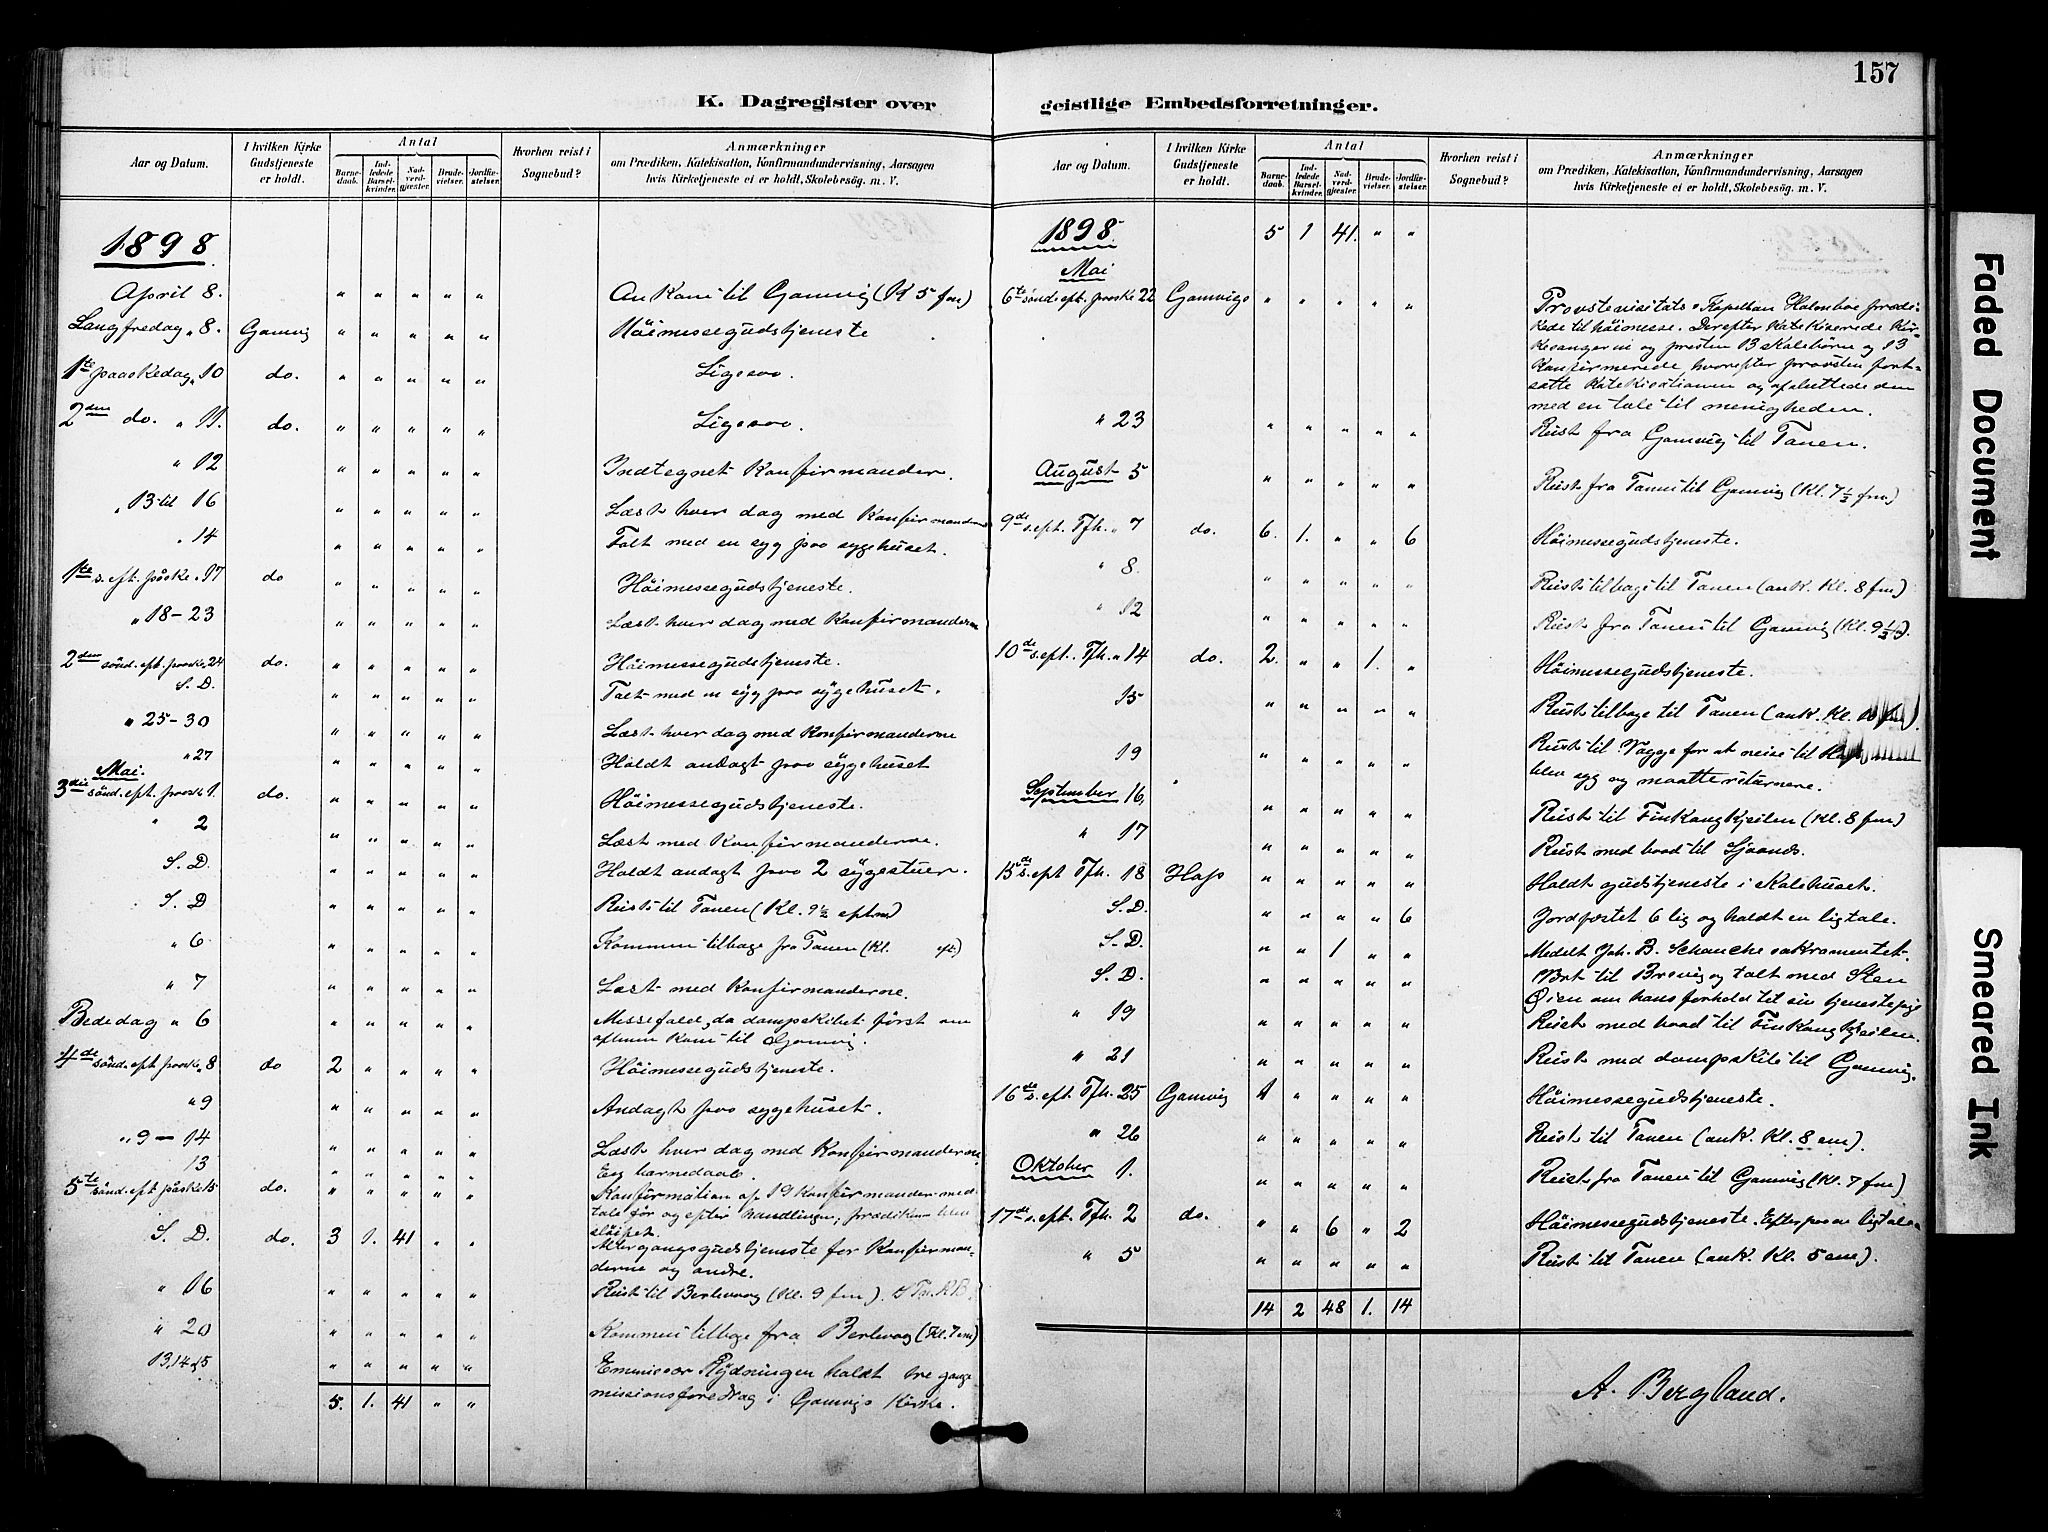 157
K. Dagregister over geistlige Embedsforretninger.
Aar og Datum. I hvilken Kirke Gudstjeneste er holdt. Antal Barnedaab. Indledede Barselkvinder. Nadverdgjæster. Brudevielser. Jordfæstelser. Hvorhen reist i Sognebud? Anmærkninger om Prædiken, Katekisation, Konfirmandundervisning, Aarsagen hvis Kirketjeneste ei er holdt, Skolebesøg. m. V.
1898
April 8. " " " " " Ankom til Gamvig (K 5 fm)
Langfredag " 8. Gamvig " " " " " Höimessegudstjeneste
1ste paaskedag " 10 do. " " " " " Ligesaa.
2den do. " 11. do. " " " " " Ligesaa.
" 12 " " " " " Indtegnet Konfirmander.
" 13 til 16 " " " " " Læst hver dag med Konfirmanderne
" 14 " " " " " Talt med en syg paa sygehuset.
1ste s. eft. påske " 17 do " " " " " Höimessegudstjeneste.
" 18-23 " " " " " Læst hver dag med Konfirmanderne
2den sönd. eft. paaske " 24 do. " " " " " Höimessegudstjeneste.
S. D. " " " " " Talt med en syg paa sygehuset.
" 25-30 " " " " " Læst hver dag med Konfirmanderne
" 27 " " " " " Holdt andagt paa sygehuset
Mai.
3die sönd. eft. paaske 1. do. " " " " " Höimessegudstjeneste.
" 2 " " " " " Læst med Konfirmanderne.
S. D. " " " " " Holdt andagt paa 2 sygestuer.
S. D " " " " " Reist til Tanen (Kl. 9 1/2 eftm)
" 6 " " " " " Kommen tilbage fra Tanen (Kl. eft)
" 7 " " " " " Læst med Konfirmanderne.
Bededag " 6 " " " " " Messefald, da dampskibet först om
aftenen kom til Gamvig.
4de sönd. eft paaske " 8 do 2 " " " " Höimessegudstjeneste.
" 9 " " " " " Andagt paa sygehuset.
" 9 - 14 " " " " " Læst hver dag med Konfirmanderne
13 " " " " " En barnedaab.
5te sönd. eft påske 15 do. " " " " " Konfirmation af 19 Konfirmander med
tale för og efter handlingen; prædiken blev
slöifet.
S. D. do. 3 1. 41 " " Altergangsgudstjeneste for Konfirman-
derne og andre.
" 16 " " " " " Reist til Berlevaag (Kl. 9 fm).
" 20 " " " " " Kommen tilbage fra Berlevaag (Kl. 7 em)
13, 14 & 15 " " " " " Emmissær Rydningen holdt tre gange
missionsforedrag i Gamvigs Kirke.
5. 1. 41 " "
Aar og Datum. I hvilken Kirke Gudstjeneste er holdt. Antal Barnedaab. Indledede Barselkvinder. Nadverdgjæster. Brudevielser. Jordfæstelser. Hvorhen reist i Sognebud? Anmærkninger om Prædiken, Katekisation, Konfirmandundervisning, Aarsagen hvis Kirketjeneste ei er holdt, Skolebesøg. m. V.
1898. 5 1 41. " "
Mai
6te sönd. eft. paaske 22 Gamvigs " " " " " Provstevisitats. Kapellan Holmboe prædi-
kede til höimesse. Derefter katekiserede kir-
kesangeren og presten 13 skolebörn og 13
konfirmerede, hvorefter provsten fort-
satte katekisationen og afsluttede den
med en tale til menigheden.
" 23 " " " " " Reist fra Gamvig til Tanen.
August 5 " " " " " Reist fra Tanen til Gamvig (Kl. 7 1/2 fm)
9de s. eft. Tfh. " 7 do. 6. 1. " " 6 Höimessegudstjeneste.
" 8. " " " " " Reist tilbage til Tanen (ank. Kl. 8 fm)
" 12 " " " " " Reist fra Tanen til Gamvig (Kl. 9 1/2).
10de s. eft. Tfh. " 14 do. 2. " " 1. " Höimessegudstjeneste.
15 " " " " " Reist tilbage til Tanen (ank. Kl. 10
19 " " " " " Reist til Vagge for at reise til
blev syg og maatte returnere.
September 16. " " " " " Reist til Finkongkjeilen (Kl. 8 fm)
" 17 " " " " " Reist med baad til Sjaands.
15de s. eft Tfh. 18 Hops " " " " " Holdt gudstjeneste i skolehuset.
S. D. " " " " 6 Jordfæstet 6 lig og holdt en ligtale.
S. D. " " 1 " " Medelt Joh. B. Schanche sakramentet.
S. D. " " " " " til og talt med Sten
Öien om hans forhold til sin tjenestepige
" 19 " " " " " Reist med baad til Finkongkjeilen.
" 21 " " " " " Reist med dampskib til Gamvig.
16de s. eft. Tfh. 25 Gamvig 1 " " " " Höimessegudstjeneste.
" 26 " " " " " Reist til Tanen (ank. Kl. 8 em).
Oktober 1. " " " " " Reist fra Tanen til Gamvig (Kl. 7 fm)
17de s. eft. Tfh. 2 do. " " 6 " 2 Höimessegudstjeneste. Efterpaa en ligtale
" 5 " " " " " Reist til Tanen (ank. Kl. 5 em).
14 2 48 1. 14
A. Bergland.
Faded Document
Smeared Ink